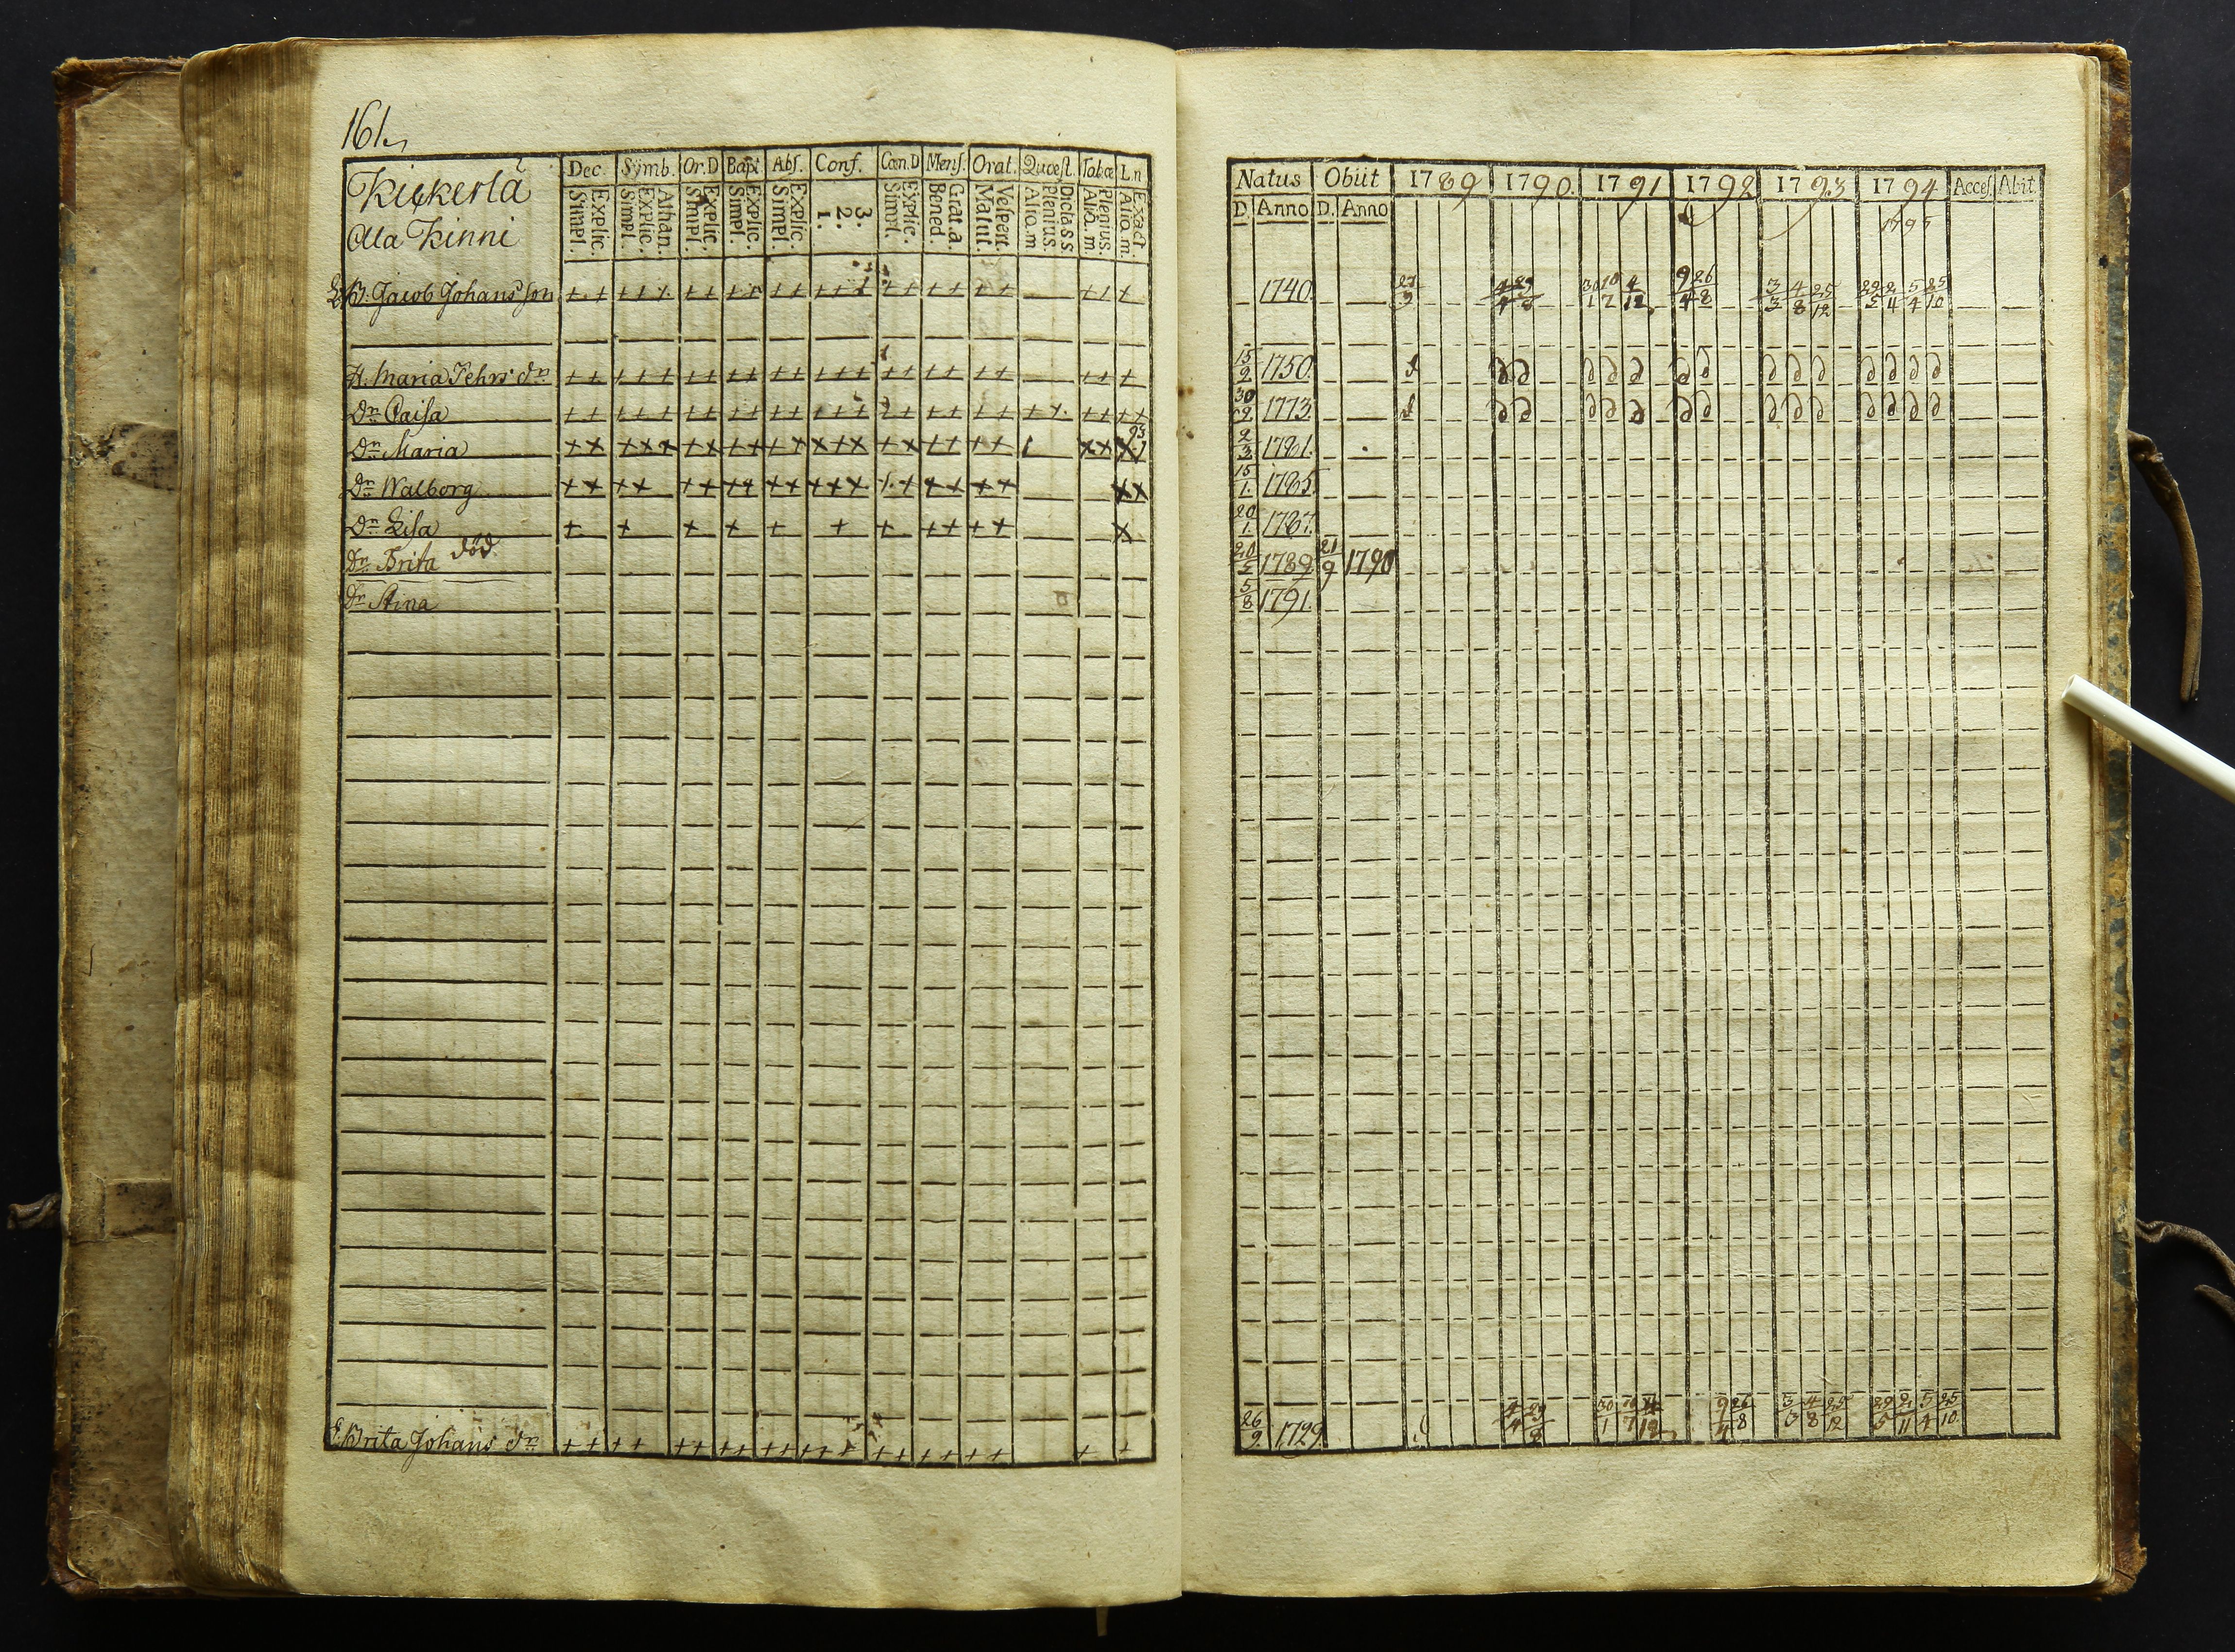 161.
Kickerlä
Ala Kinni
Dec. Symb. Or.D Bapt Abſ. Conf. Cœn.D Menſ. Orat. Quæſt. Tab.œ L.n
Simpl. Explic. Simpl. Explic. Athan. Simpl. Explic. Simpl. Explic. Simpl. Explic. 1. 2. 3. Simpl. Explic. Bened. Grat.a. Matut. Veſpert. Aliq.m Plenius. Aliq.m Plenius. Aliq.m. Exact
Natus Obiit 1789 1790. 1791 1792 1793 1794 Acceſ Abit.
D. Anno D. Anno 1795
B. Jacob Johansſon ++ +++ ++ ++ ++ +++ ++ ++ ++ ++ + 1740. 27/9 4/4 30/1 10/7 4/12 9/4 26/8 3/3 4/8 25/12 29/5 2/11 5/4 25/10
H. Maria Pehrs dr ++ +++ ++ ++ ++ +++ ++ ++ ++ ++ + 15/2 1750.
Dr Caisa ++ +++ ++ ++ ++ +++ ++ ++ ++ ++ ++ ++ 30/9 1773.
Dr Maria ++ +++ ++ ++ ++ +++ ++ ++ ++ ++ 2/3 1781.
Dr Walborg ++ ++ ++ ++ ++ +++ ++ ++ ++ ++ 15/1. 1785.
Dr Lisa + + + + + + + ++ ++ + 20/1. 1787.
Dr Brita död. 1789 21/9 1790
Dr Stina 5/8 1791.
E. Brita Johans dr ++ ++ ++ ++ ++ +++ ++ ++ ++ + + 26/9. 1729. 4/4 29/8 30/1 10/7 4/12 9/4 26/8 3/3 4/8 25/12 29/5 2/11 5/4 25/10